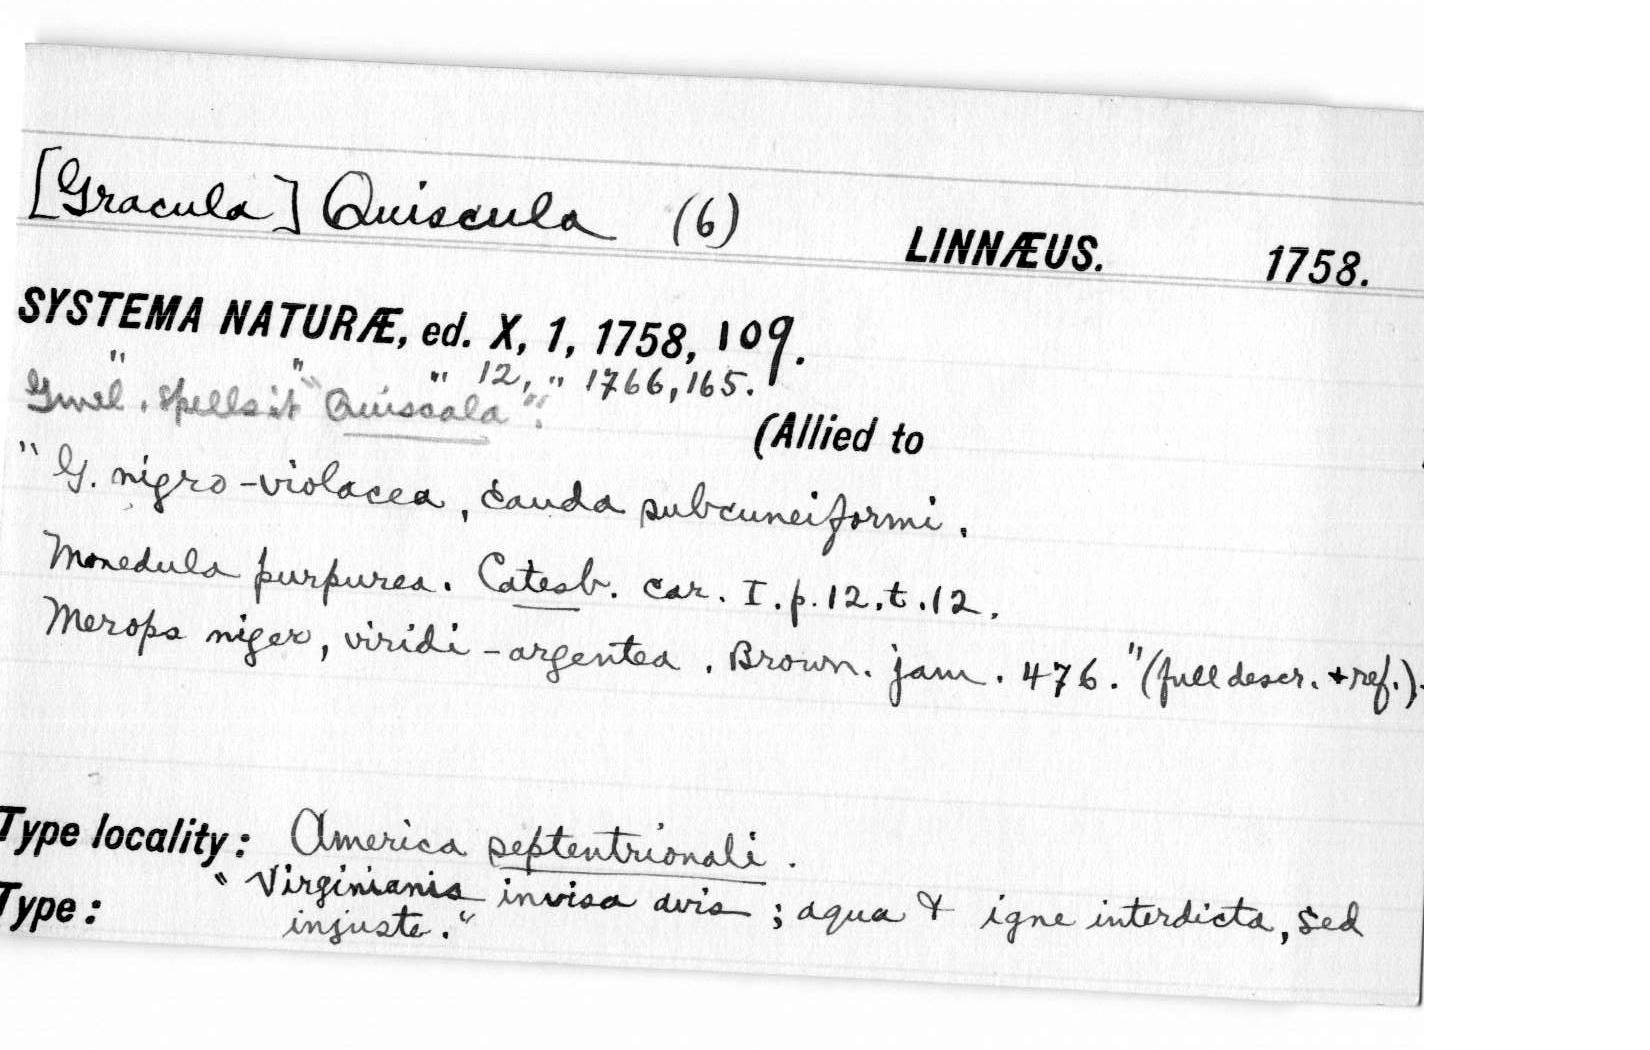 [Gracula] Quiscula (6) LINNÆUS. 1758.
SYSTEMA NATURÆ, ed. X, 1, 1758, 109.
" " " 12, " 1766, 165.
Gmel. spells it "Quiscala".
(Allied to
"G. nigro-violacea, cauda subcuneiformi.
Monedula purpurea. Catesb. car. I. p. 12. t. 12.
Merops niger, viridi-argentea. Brown. jam. 476." (full descr. + ref.).
Type locality: America septentrionali.
"Virginianis invisa avis; aqua & igne interdicta, sed
Type: injuste."